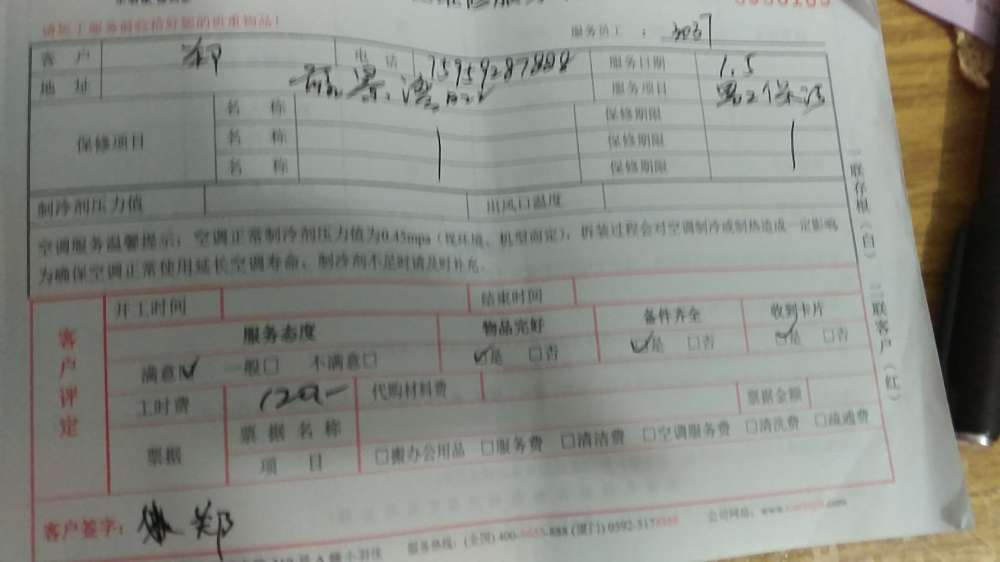 请您于服务前收拾好您的贵重物品！
服务员工：
客户 郑 电话 15959287888 服务日期 1.5
地址 服务项目
保修项目 名称 保修期限
名称 保修期限
名称 保修期限
制冷剂压力值 出风口温度
空调服务温馨提示：空调正常制冷剂压力值为0.45mpa（视环境、机型而定），拆装过程会对空调制冷或制热造成一定影响
为确保空调正常使用延长空调寿命，制冷剂不足时请及时补充
一联存根（白） 二联客户（红）
客户评定
开工时间 结束时间
服务态度 物品完好 备件齐全 收到卡片
满意☑ 一般□ 不满意□ ☑是 □否 ☑是 □否 ☑是 □否
工时费 120- 代购材料费 票据金额
票据 票据名称
项目 □搬办公用品 □服务费 □清洁费 □空调服务费 □清洗费 □疏通费
客户签字： 郑
服务热线：(全国) 400- -888 (厦门) 0592-517 公司网站：www. .com